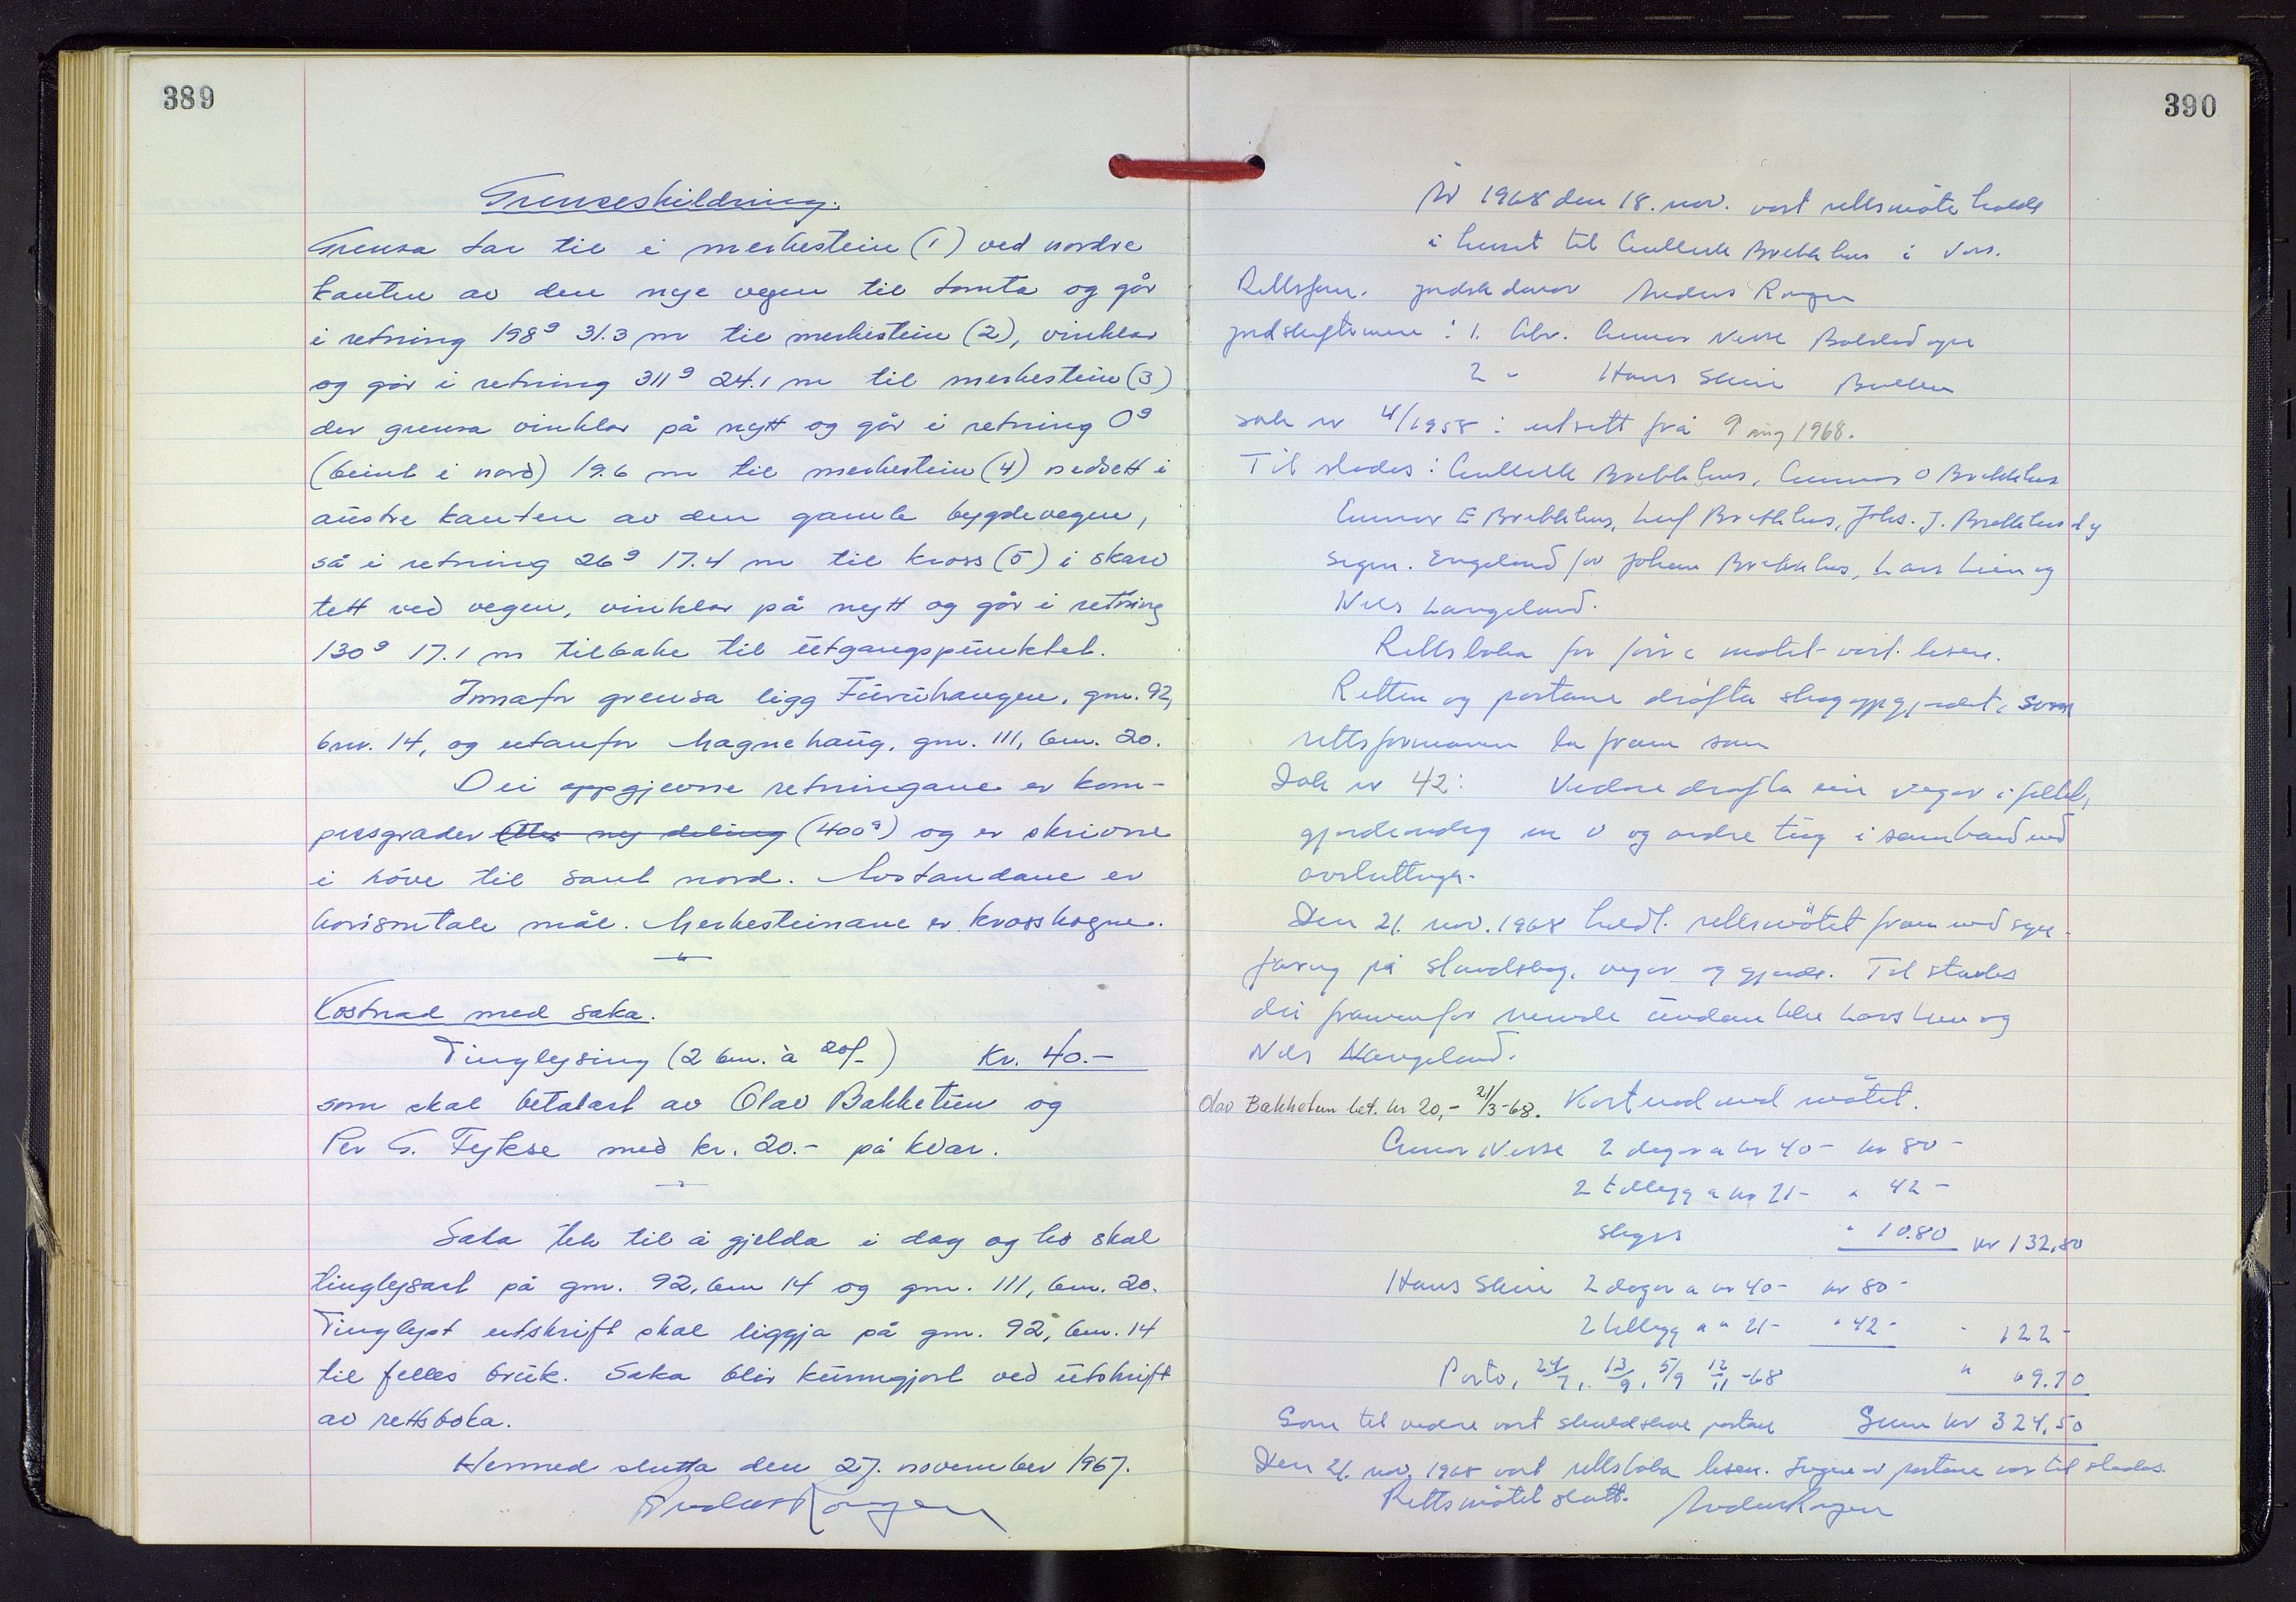 389
Grenseskildring.
Grensa tar til i merkestein (1) ved nordre
kanten av den nye vegen til tomta og går
i retning 198ᵍ 31.3 m til merkestein (2), vinklar
og går i retning 311ᵍ 24.1 m til merkestein (3)
der grensa vinklar på nytt og går i retning 0ᵍ
(beint i nord) 19.6 m til merkestein (4) nedsett i
austre kanten av den gamle bygdevegen,
så i retning 26ᵍ 17.4 m til kross (5) i skaro
tett ved vegen, vinklar på nytt og går i retning
130ᵍ 17.1 m tilbake til utgangspunktet.
Innafor grensa ligg Furuhaugen, gnr. 92,
bnr. 14, og utanfor Magnehaug, gnr. 111, bnr. 20.
Dei oppgjevne retningane er kom-
passgrader etter ny deling (400ᵍ) og er skrivne
i høve til sant nord. Avstandane er
horisontale mål. Merkesteinane er krosshogne.
Kostnad med saka.
Tinglysing (2 bnr. à 20/-) Kr. 40.-
som skal betalast av Olav Bakketun og
Per G. Fykse med kr. 20.- på kvar.
Saka tek til å gjelda i dag og ho skal
tinglysast på gnr. 92, bnr 14 og gnr. 111, bnr. 20.
Tinglyst utskrift skal liggja på gnr. 92, bnr. 14
til felles bruk. Saka blir kunngjort ved utskrift
av rettsboka.
Hermed slutta den 27. november 1967.
390
År 1968 den 18. nov. vart rettsmöte halde
i huset til Brekkhus i Voss.
Rettsform. jordskdomar Anders
jordskiftemenn : 1. Gunnar Nesse Bolstadøyri
2 " Hans
sak nr 4/1958 : utsett frå 9 aug 1968.
Til stades : Brekkhus, Gunnar O Brekkhus
Gunnar E Brekkhus, Leif Brekkhus, Johs. J. Brekkhus
Engeland for Johan Brekkhus, Lars Lien og
Nils Langeland.
Rettsboka for førre møtet vart lesen.
Retten og partane drøfta skogoppgjerdet, som
rettsformannen la fram som
Dok nr 42: Vidare drøfta ein vegar i feltet,
gjerde m v og andre ting i samband med
avsluttinga.
Den 21. nov. 1968 heldt rettsmötet fram med syn-
faring på vegar og gjerde. Til stades
dei framanfor nemnde undan Lars Lien og
Nils Langeland.
Olav Bakketun bet. kr 20,- 21/3-68. Kostnad med mötet.
Gunnar Nesse 2 dagar a kr 40- kr 80-
2 tillegg a kr 21- " 42-
skyss " 10.80 kr 132,80
Hans 2 dagar a kr 40- kr 80-
2 tillegg a " 21- " 42- " 122-
Porto, 24/7, 13/9, 5/9 12/11 -68 " 69.70
Som til vidare vart partane Sum kr 324,50
Den 21. nov. 1968 vart rettsboka lesen. Ingen av partane var til stades.
Rettsmötet slutt.